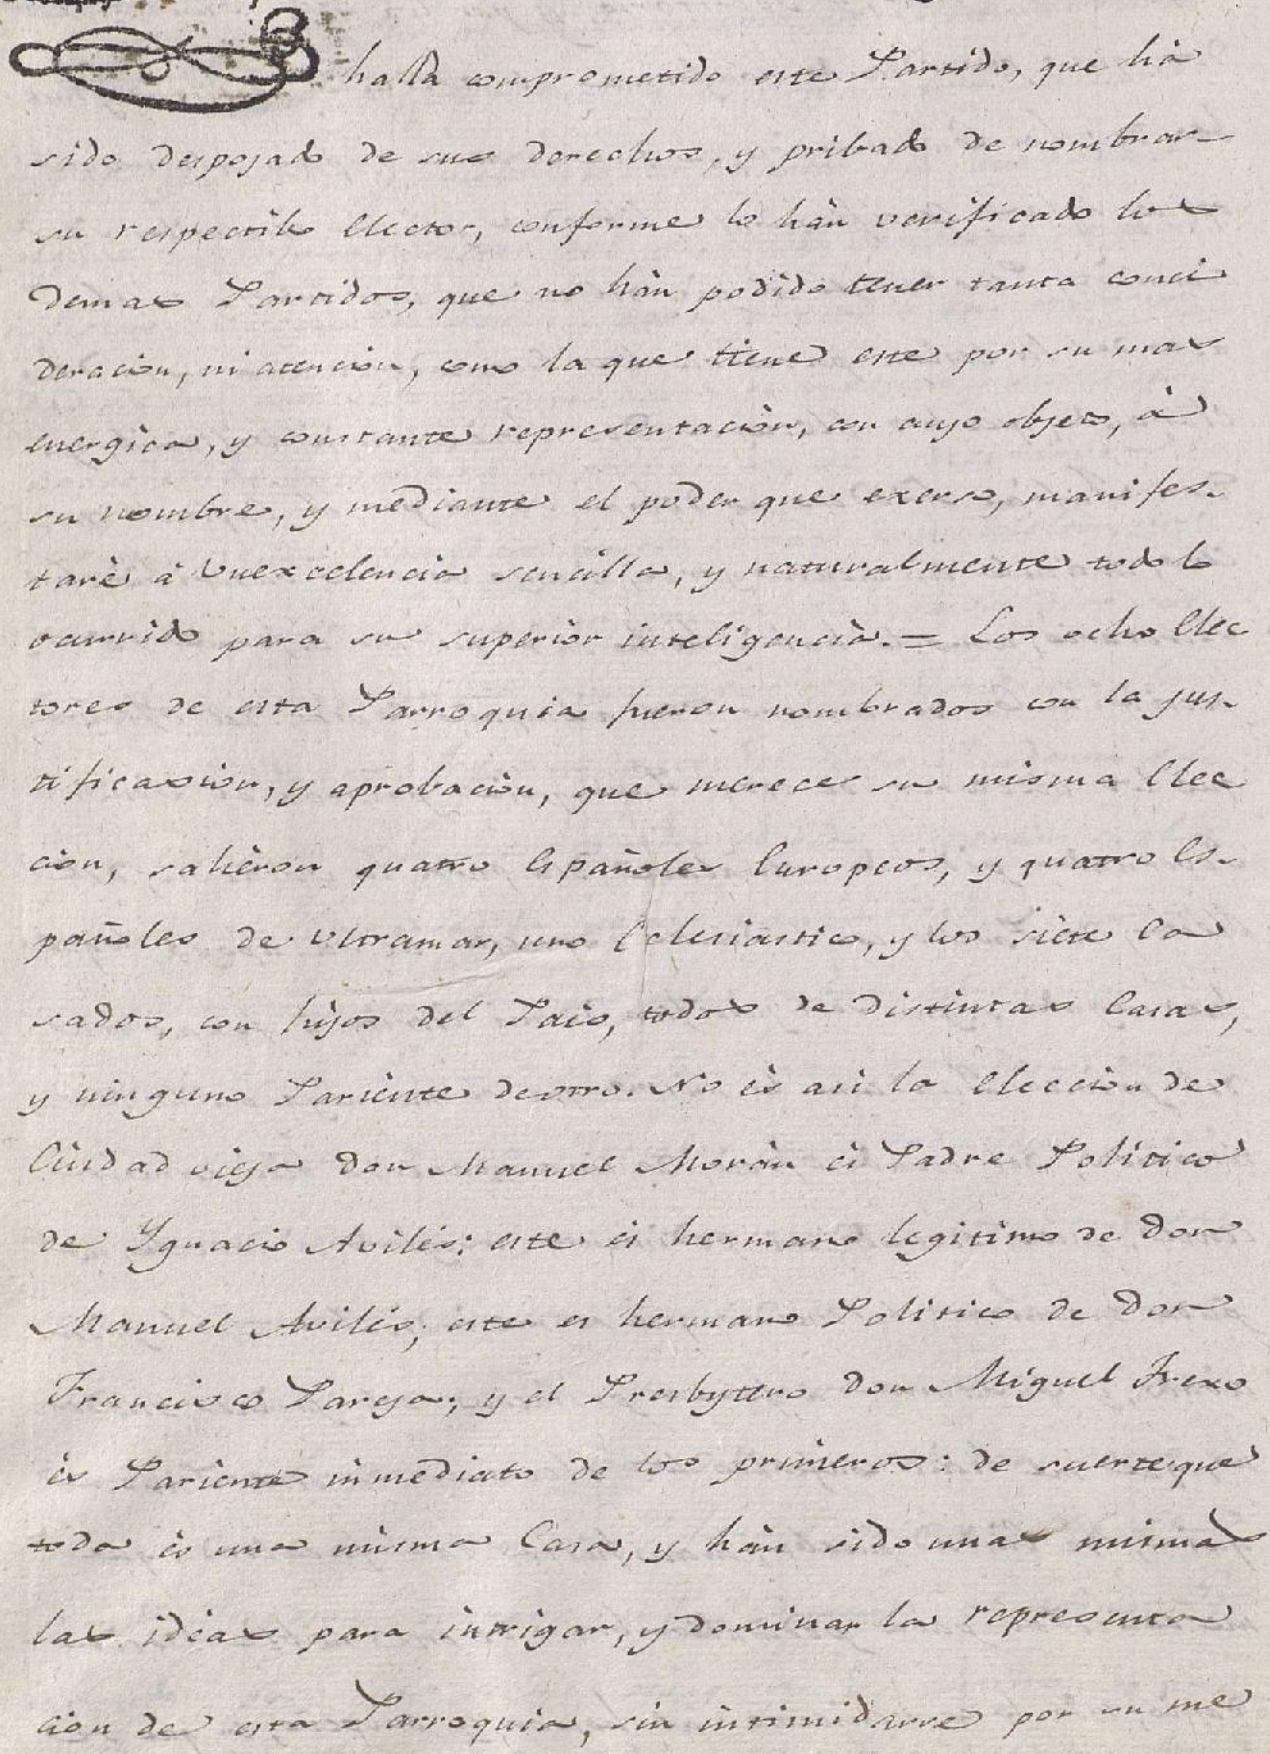 halla comprometido este Partido, que hà
sido despojado de sus derechos, y pribado de nombrar
su respectibo Elector, conforme lo hàn verificado los
demas Partidos, que no hàn podido tener tanta conci
deracion, ni atencion, como la que tiene este por su mas
energica, y constante representaciòn, con cuyo objeto, à
su nombre, y mediante el poder que exerso, manifes-
tarè à Vuexcelencia sencilla, y naturalmente todo lo
ocurrido para su superior inteligencia. = Los ocho Elec
tores de esta Parroquia fueron nombrados con la jus-
tificaxion, y aprobaciòn, que merece su misma Elec
cion, salieron quatro Españoles Europeos, y quatro Es-
pañoles de Ultramar, uno Eclesiastico, y los siete Ca
sados, con hijos del Pais, todos de distintas Casas,
y ninguno Pariente de otro. No ès asi la Eleccion de
Ciudad vieja don Manuel Moràn es Padre Politico
de Ygnacio Avilés; este es hermano legitimo de don
Manuel Avilés; este es hermano Politico de don
Francisco Pareja; y el Presbytero don Miguel Frexo
ès Pariente inmediato de los primeros: de suerte que
todo ès una misma Casa, y hàn sido unas mismas
las idèas para intrigar, y dominar la representa
cion de esta Parroquia, sin intimidarse por su me